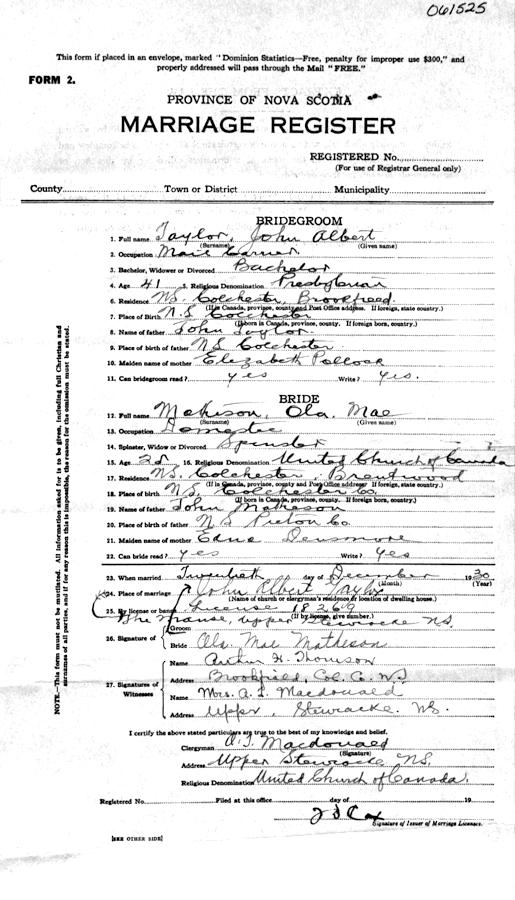 061525
This form if placed in an envelope, marked "Dominion Statistics—Free, penalty for improper use $300," and
properly addressed will pass through the Mail "FREE."
FORM 2.
PROVINCE OF NOVA SCOTIA
MARRIAGE REGISTER
REGISTERED No.
(For use of Registrar General only)
County Town or District Municipality
BRIDEGROOM
1. Full name Taylor, John Albert
(Surname) (Given name)
2. Occupation Mail Carrier
3. Bachelor, Widower or Divorced Bachelor
4. Age 41 5. Religious Denomination Presbyterian
6. Residence N.S. Colchester, Brookfield.
(If in Canada, province, county and Post Office address. If foreign, state country.)
7. Place of Birth N.S. Colchester
(If born in Canada, province, county. If foreign born, country.)
8. Name of father John Taylor
9. Place of birth of father N S Colchester
10. Maiden name of mother Elizabeth Pollock
11. Can bridegroom read? yes Write? yes.
BRIDE
12. Full name Matheson, Ola. Mae
(Surname) (Given name)
13. Occupation Domestic
14. Spinster, Widow or Divorced Spinster
15. Age 28 16. Religious Denomination United Church of Canada
17. Residence N.S. Colchester Brentwood
(If in Canada, province, county and Post Office address. If foreign, state country.)
18. Place of birth N.S. Colchester Co.
(If born in Canada, province, county. If foreign born, country.)
19. Name of father John Matheson
20. Place of birth of father N S Pictou Co.
21. Maiden name of mother Edna Densmore
22. Can bride read? yes Write? yes
23. When married Twentieth day of December 1930
(Month) (Year)
24. Place of marriage John Albert Taylor
(Name of church or clergyman's residence or location of dwelling house.)
25. By license or banns License 18269
(If by license, give number.)
The Manse, Upper Stewiacke N.S.
Groom
26. Signature of
Bride Ola. Mae Matheson
Name Arthur H. Thomson
27. Signatures of Witnesses
Address Brookfield, Col. Co. N.S.
Name Mrs. A. L. Macdonald
Address Upper, Stewiacke. N.S.
I certify the above stated particulars are true to the best of my knowledge and belief.
Clergyman Macdonald
(Signature)
Address Upper Stewiacke N.S.
Religious Denomination United Church of Canada.
Registered No. Filed at this office day of 19
Signature of Issuer of Marriage Licenses.
[SEE OTHER SIDE]
NOTE.—This form must not be mutilated. All information asked for is to be given, including full Christian and
surnames of all parties, and if for any reason this is impossible, the reason for the omission must be stated.